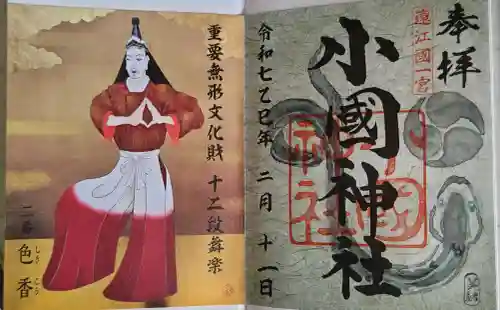 奉拝
遠江國一宮
小國神社
令和七乙巳年 二月 十一日
重要無形文化財 十二段舞楽
二番
色香
しき こう